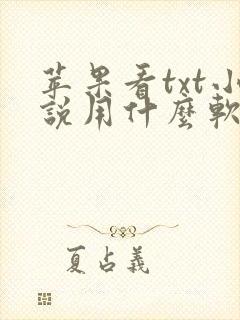 苹果看txt小
說用什麼軟
夏占義